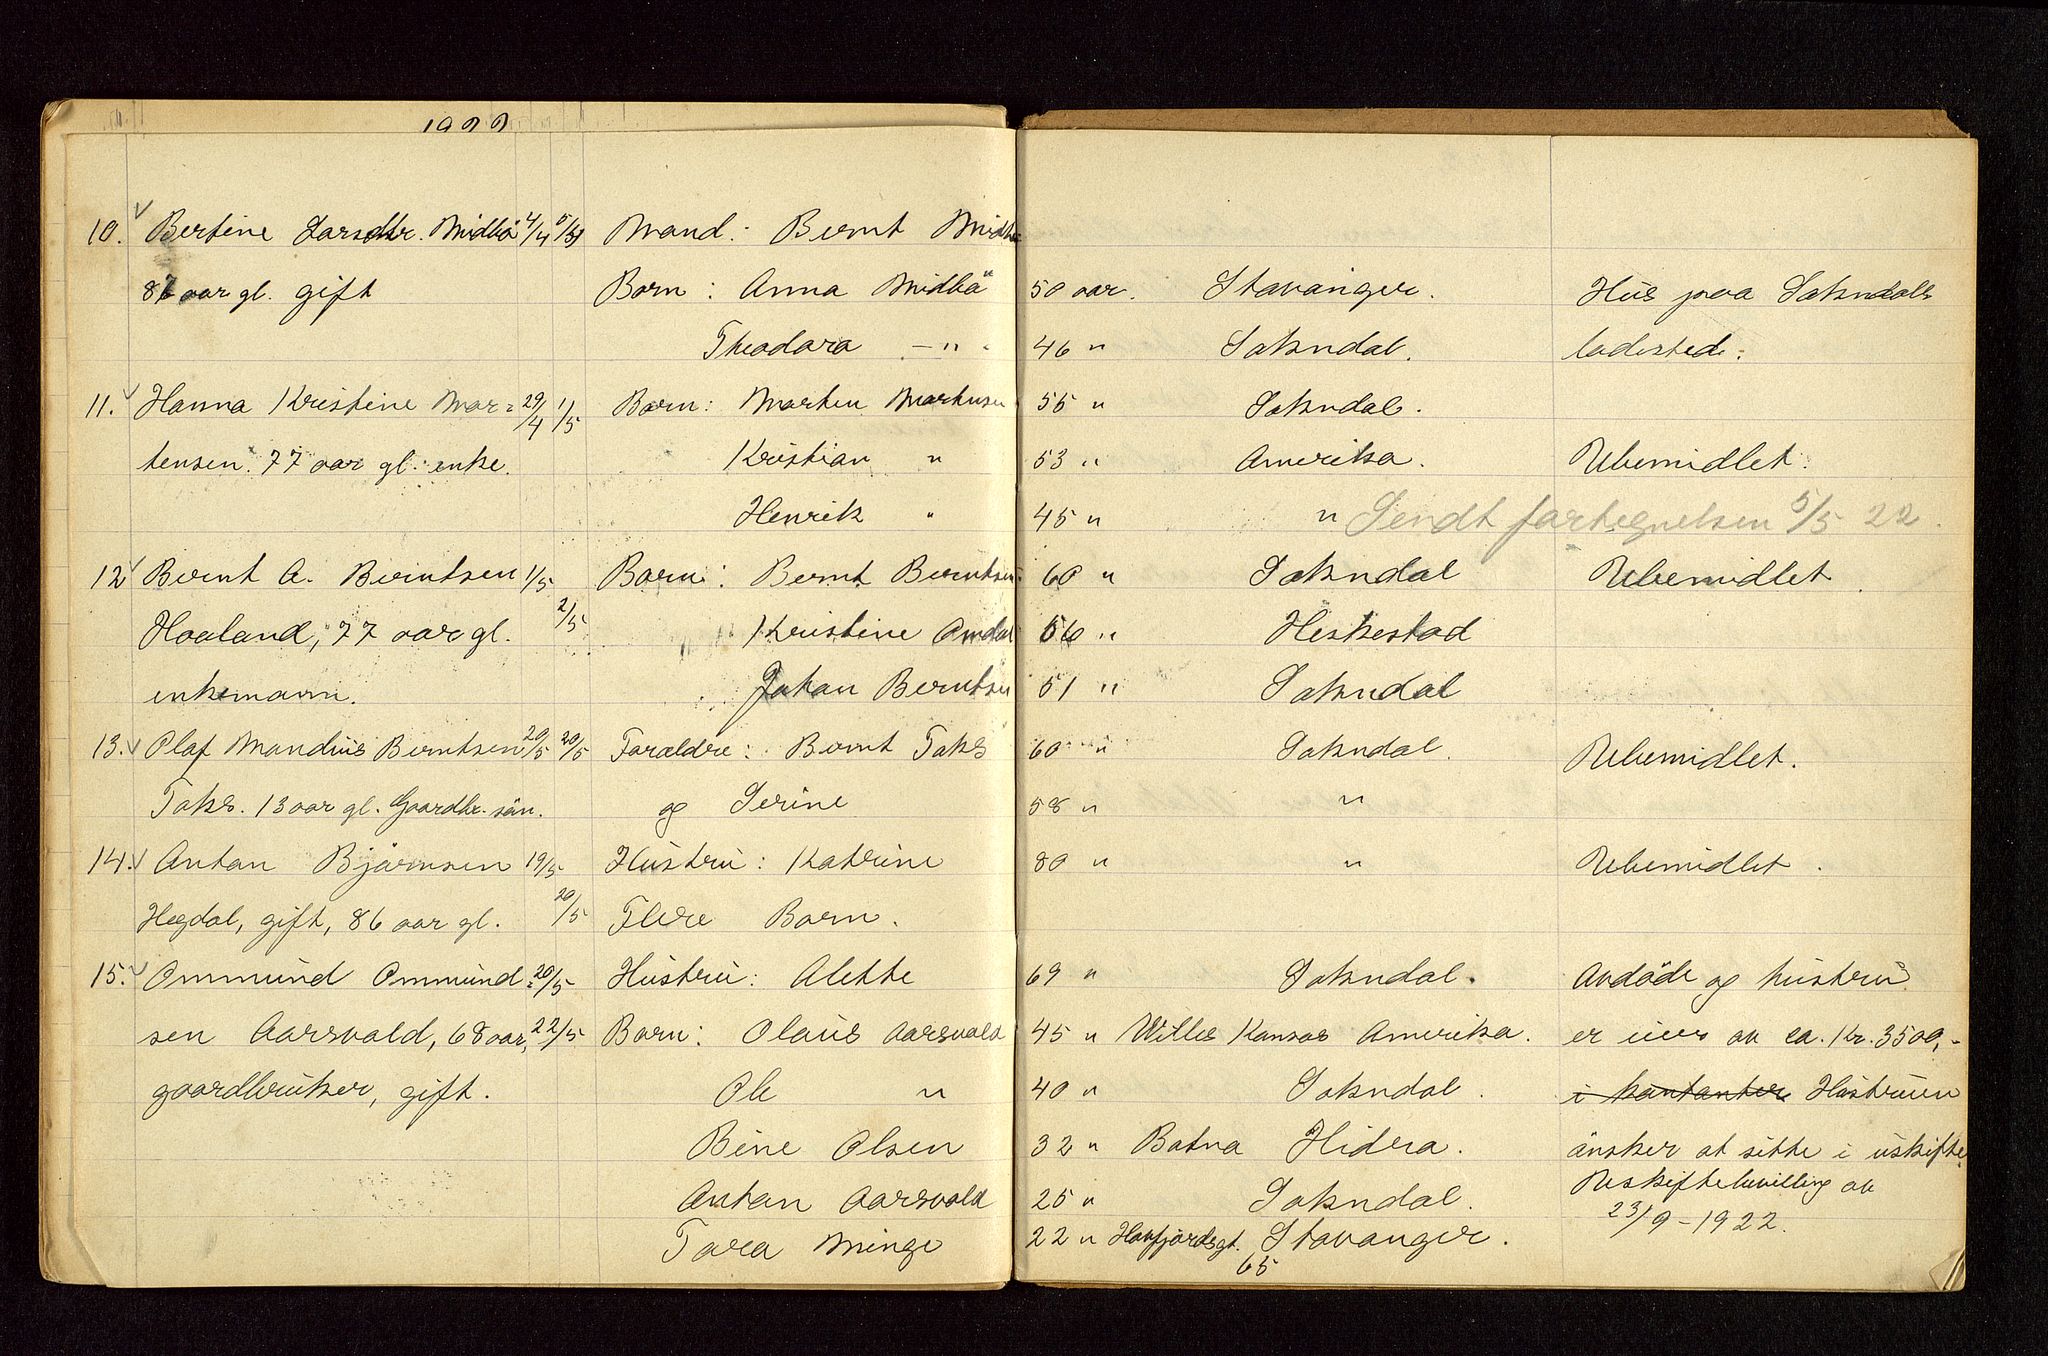 1922
10. Bertine Larsdtr. Midbö 4/4 5/4 Mand: Bernt Midbö
87 aar gl. gift Barn: Anna Midbö 50 aar. Stavanger. Hus paa Sokndals
Theodora — " - 46 " Sokndal. ladested.
11. Hanna Kristine Mar= 29/4 1/5 Barn: Morten Martensen 55 " Sokndal.
tensen. 77 aar gl. enke. Kristian " 53 " Amerika. Ubemidlet.
Henrik " 45 " " Sendt fortegnelsen 5/5 22.
12 Bernt A. Berntsen 1/5 Barn: Bernt Berntsen 60 " Sokndal Ubemidlet.
Haaland, 77 aar gl. 2/5 Kristine Omdal 56 " Heskestad
enkemann. Johan Berntsen 51 " Sokndal
13. Olaf Mandius Berntsen 20/5 20/5 Foraldre: Bernt Toks 60 " Sokndal. Ubemidlet.
Toks. 13 aar gl. Gaardbr. sön. og Serine 58 " "
14. Anton Björnsen 19/5 Hustru: Katrine 80 " " Ubemidlet.
Hegdal, gift, 86 aar gl. 20/5 Flere Barn.
15. Ommund Ommund= 20/5 Hustru: Alette 69 " Sokndal. Avdöde og hustru
sen Aarsvold, 68 aar, 22/5 Barn: Olaus Aarsvold 45 " Willis Kansas Amerika. er eier av ca. Kr. 3500,-
gaardbruker, gift. Ole " 40 " Sokndal. i kontanter Hustruen
Bine Olsen 32 " Batna Hidra. önsker at sitte i uskifte.
Anton Aarsvold 25 " Sokndal. Uskiftebevilling av
Tora Minge 22 " Havfjordsgt. Stavanger. 23/9-1922.
65